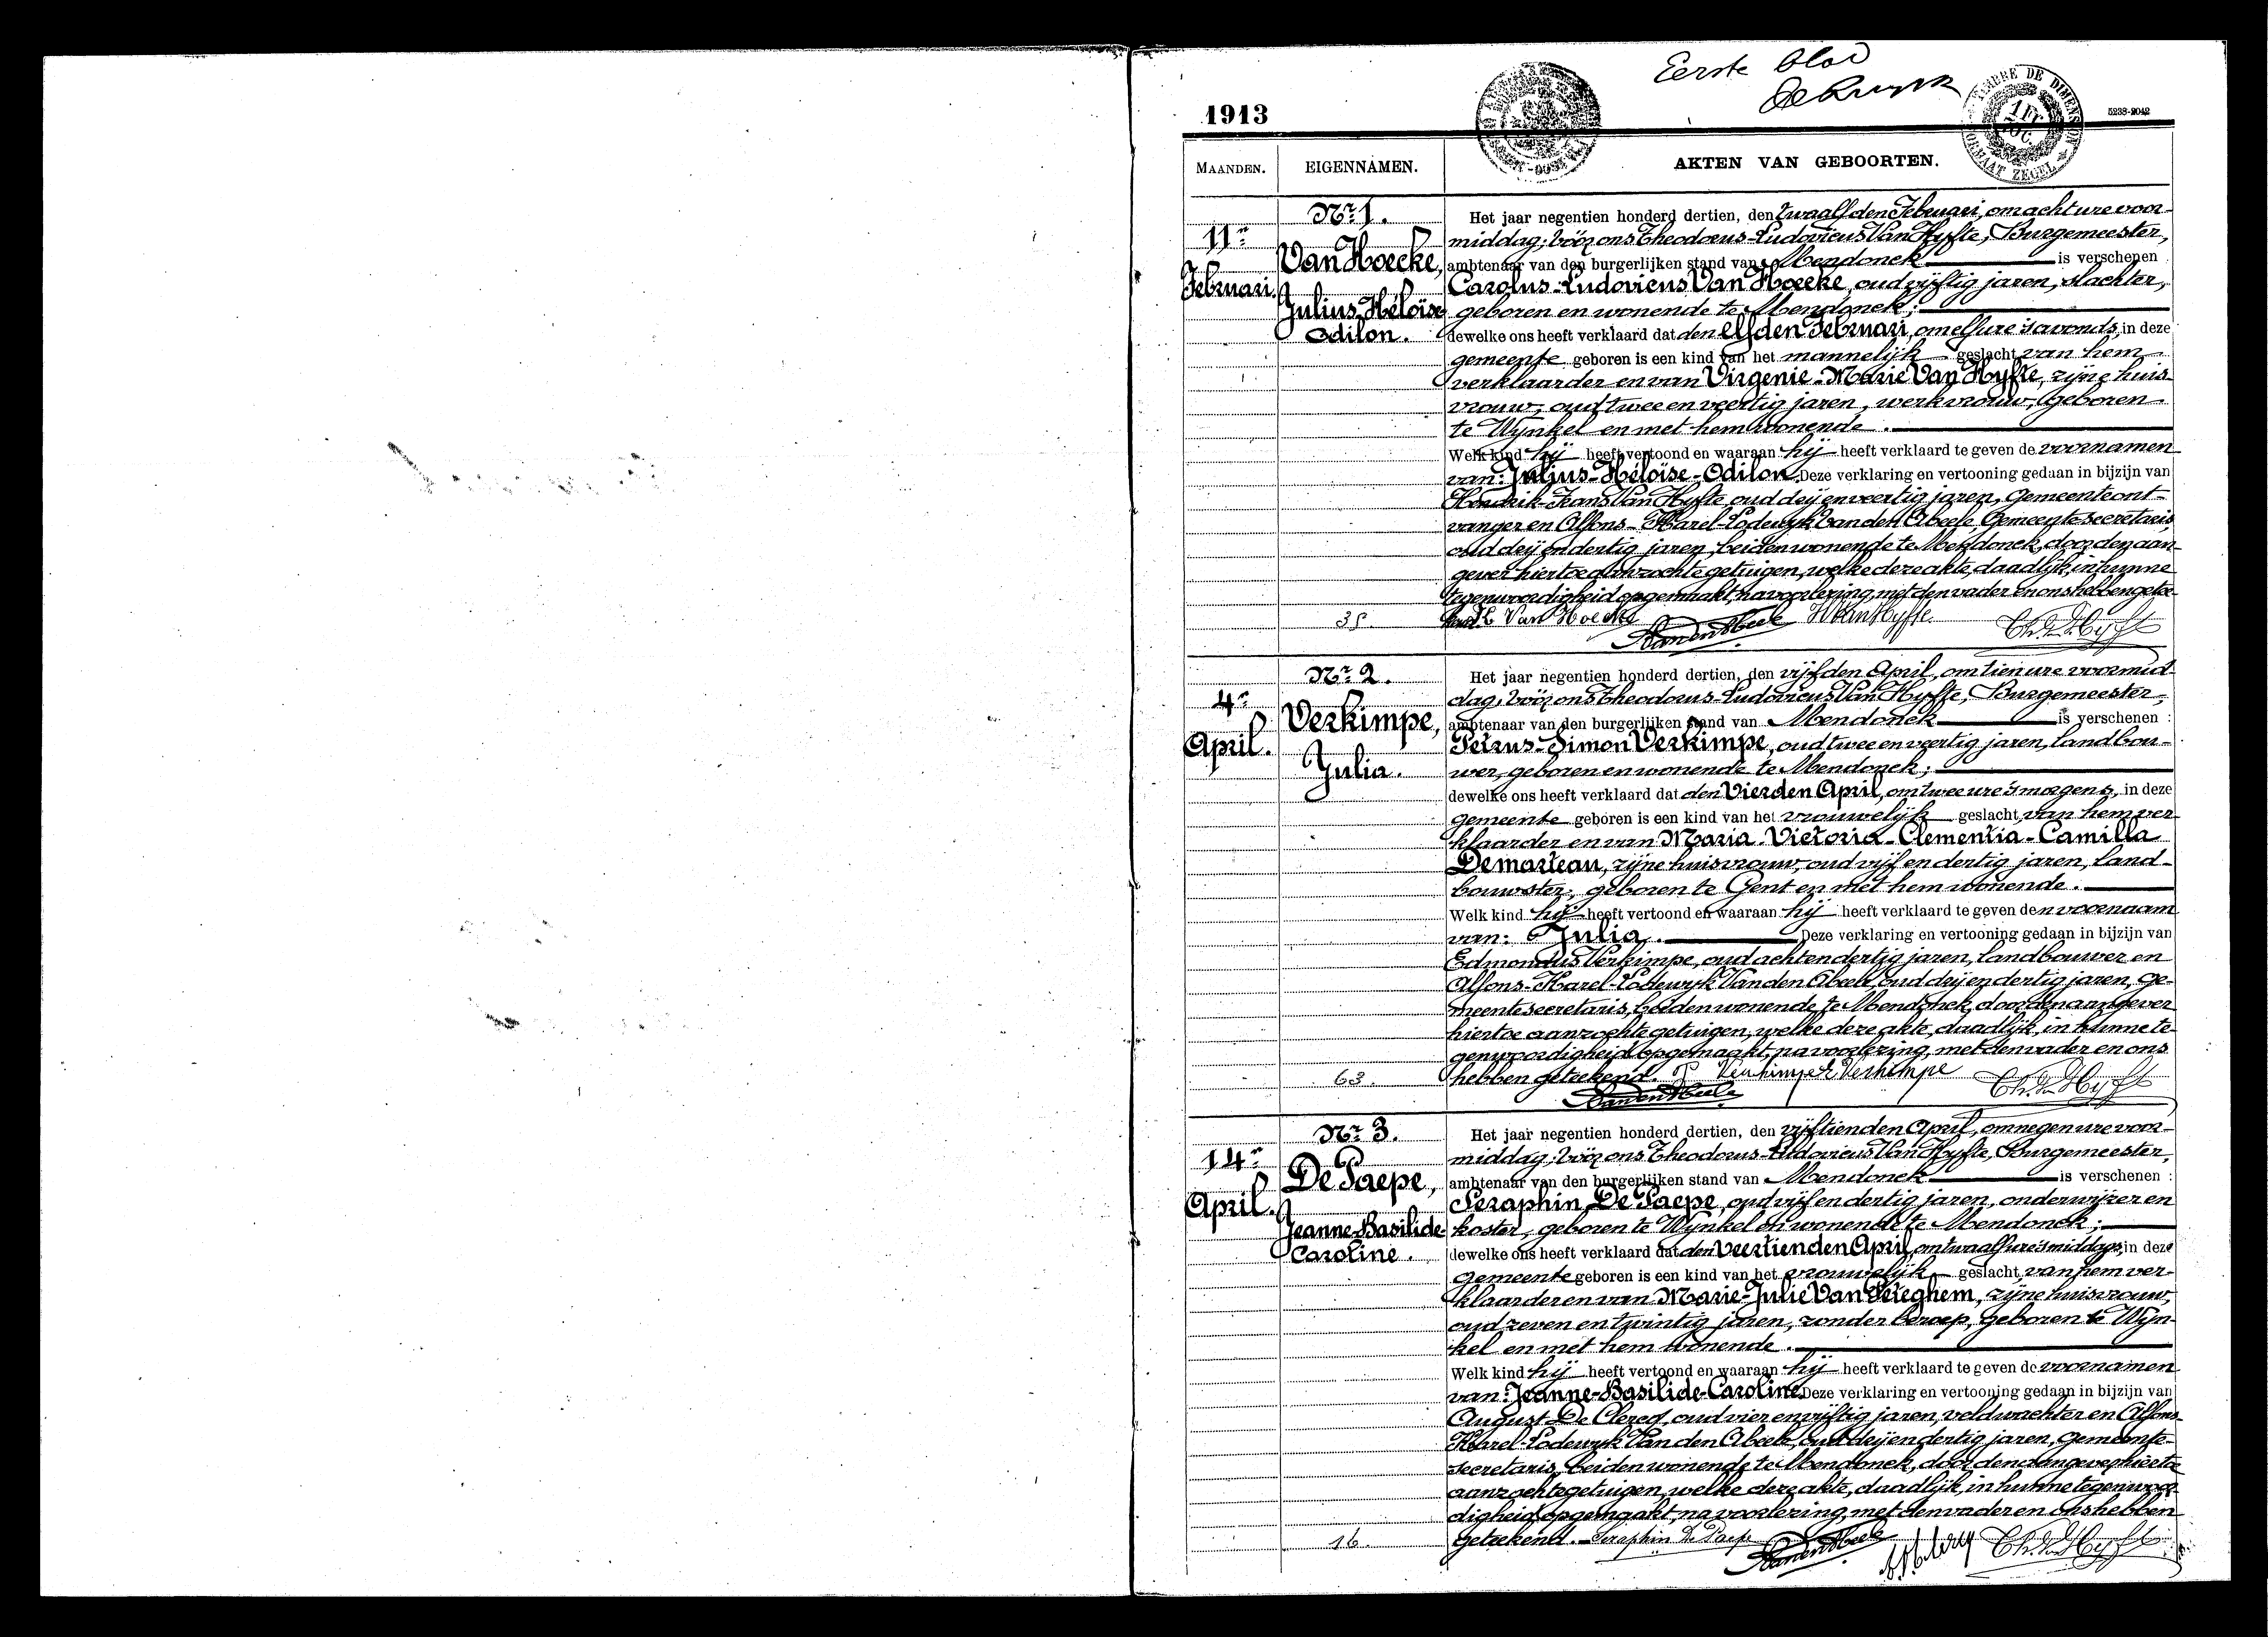 Eerste blad
1913
5238-2042
TIMBRE DE DIMENSION
FORMAAT ZEGEL
MAANDEN.
EIGENNAMEN.
AKTEN VAN GEBOORTEN.
11n
Februari.
Nr 1.
Van Hoecke,
Julius-Héloïse
Odilon.
35.
Het jaar negentien honderd dertien, den twaalfden Februari, om acht ure voor-
middag; vóór ons Theodorus-Ludovicus Van Hyfte, Burgemeester,
ambtenaar van den burgerlijken stand van Mendonck is verschenen
Carolus-Ludovicus Van Hoecke, oud vijftig jaren, slachter,
geboren en wonende te Mendonck;
dewelke ons heeft verklaard dat den elfden Februari, om elf ure 's avonds, in deze
gemeente geboren is een kind van het mannelijk geslacht, van hem
verklaarder en van Virgenie-Marie Van Hyfte, zijne huis-
vrouw, oud twee en veertig jaren, werkvrouw, geboren
te Wynkel en met hem wonende.
Welk kind hij heeft vertoond en waaraan hij heeft verklaard te geven de voornamen
van: Julius-Héloïse-Odilon. Deze verklaring en vertooning gedaan in bijzijn van
Hendrik-Frans Van Hyfte, oud drij en veertig jaren, Gemeenteont-
vanger en Alfons-Karel-Lodewyk Van den Abeele, Gemeentesecretaris,
oud drij en dertig jaren, beiden wonende te Mendonck, door den aan-
gever hiertoe aanzochte getuigen, welke deze akte, daadlijk, in hunne
tegenwoordigheid opgemaakt, na voorlezing, met den vader en ons hebben getee-
kend. Van Hoecke H Van Hyfte
Vanden Abeele Th. Van Hyfte
4n
April.
Nr 2.
Verkimpe,
Julia.
63.
Het jaar negentien honderd dertien, den vijfden April, om tien ure voormid-
dag; vóór ons Theodorus-Ludovicus Van Hyfte, Burgemeester,
ambtenaar van den burgerlijken stand van Mendonck is verschenen :
Petrus-Simon Verkimpe, oud twee en veertig jaren, landbou-
wer, geboren en wonende te Mendonck;
dewelke ons heeft verklaard dat den Vierden April, om twee ure 's morgens, in deze
gemeente geboren is een kind van het vrouwelijk geslacht, van hem ver-
klaarder en van Maria-Victoria-Clementia-Camilla
Demarteau, zijne huisvrouw, oud vijf en dertig jaren, land-
bouwster, geboren te Gent en met hem wonende.
Welk kind hij heeft vertoond en waaraan hij heeft verklaard te geven den voornaam
van: Julia. Deze verklaring en vertooning gedaan in bijzijn van
Edmondus Verkimpe, oud acht en dertig jaren, landbouwer en
Alfons-Karel-Lodewyk Van den Abeele, oud drij en dertig jaren, ge-
meentesecretaris, beiden wonende te Mendonck, door den aangever
hiertoe aanzochte getuigen, welke deze akte, daadlijk, in hunne te-
genwoordigheid opgemaakt, na voorlezing, met den vader en ons
hebben geteekend. P Verkimpe E Verkimpe
Vanden Abeele Th. Van Hyfte
14n
April.
Nr 3.
De Paepe,
Jeanne-Basilide-
Caroline.
16.
Het jaar negentien honderd dertien, den vijftienden April, om negen ure voor-
middag; vóór ons Theodorus-Ludovicus Van Hyfte, Burgemeester,
ambtenaar van den burgerlijken stand van Mendonck is verschenen :
Seraphin De Paepe, oud vijf en dertig jaren, onderwijzer en
koster, geboren te Wynkel en wonende te Mendonck;
dewelke ons heeft verklaard dat den Veertienden April, om twaalf ure 's middags, in deze
gemeente geboren is een kind van het vrouwelijk geslacht, van hem ver-
klaarder en van Marie-Julie Van Peteghem, zijne huisvrouw,
oud zeven en twintig jaren, zonder beroep, geboren te Wyn-
kel en met hem wonende.
Welk kind hij heeft vertoond en waaraan hij heeft verklaard te geven de voornamen
van: Jeanne-Basilide-Caroline. Deze verklaring en vertooning gedaan in bijzijn van
August De Clercq, oud vier en vijftig jaren, veldwachter en Alfons-
Karel-Lodewyk Van den Abeele, oud drij en dertig jaren, Gemeente-
secretaris, beiden wonende te Mendonck, door den aangever hiertoe
aanzochte getuigen, welke deze akte, daadlijk, in hunne tegenwoor-
digheid opgemaakt, na voorlezing, met den vader en ons hebben
geteekend. Seraphin De Paepe
Vanden Abeele Th. Van Hyfte